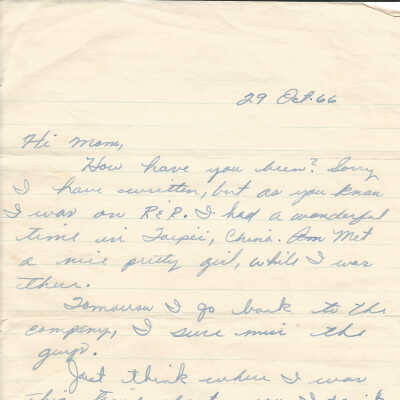 29 Oct. 66
Hi Mom,
How have you been? Sorry
I have written, but as you know
I was on R.&R. I had a wonderful
time in Taipei, China. Am Met
a nice pretty girl, while I was
there.
Tomorrow I go back to the
company, I sure miss the
guys.
Just think where I was
this time